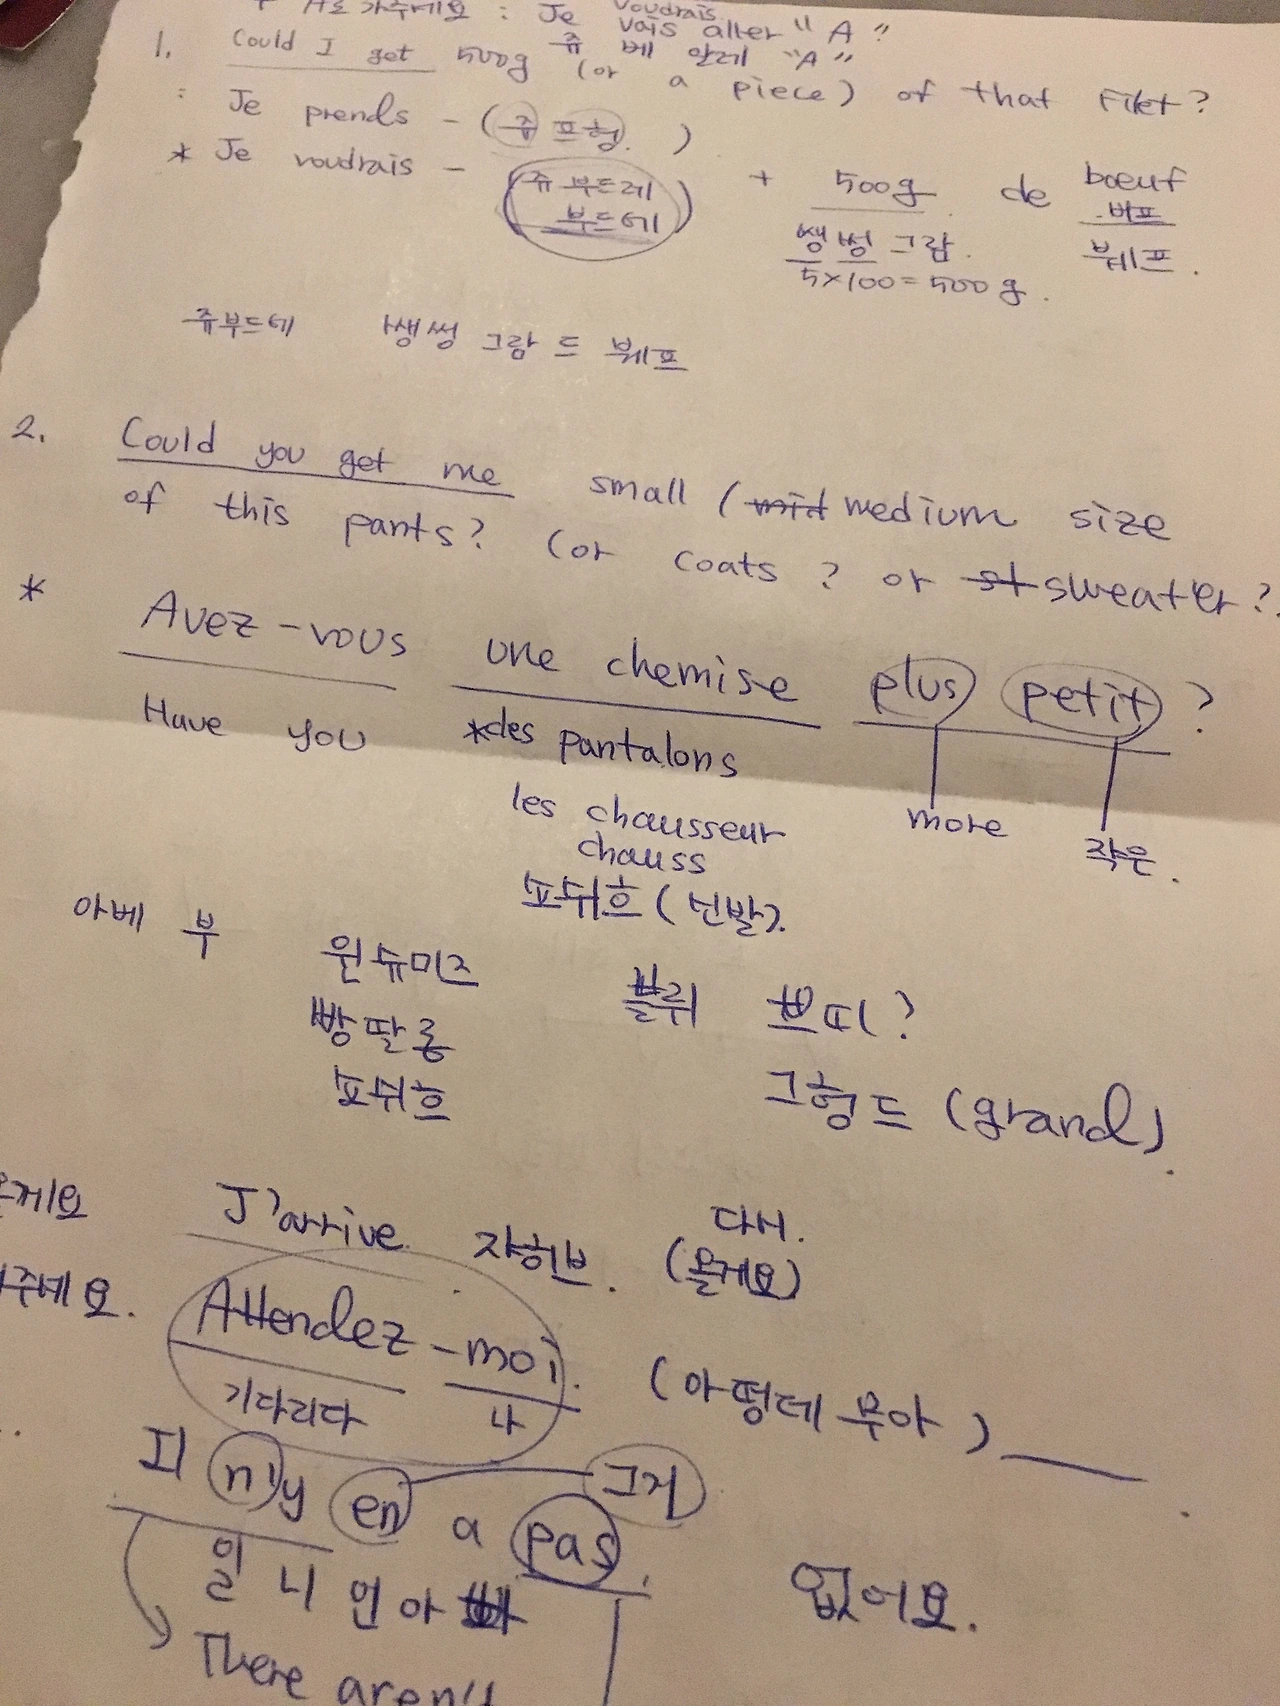 가주세요 : Je voudrais
vais aller "A"
쥬 베 알레 "A"
1. Could I get 500g (or a piece) of that Filet?
: Je prends - (쥬 프헝.)
* Je voudrais - (쥬 부드레 부드에) + 500g de bœuf
버프
쌩썽 그람. 뷔프.
5×100=500g.
쥬부드에 쌩썽 그람 드 뷔프
2. Could you get me small (medium size
of this pants? (or coats? or sweater?
* Avez-vous une chemise plus petit ?
Have you *des pantalons
more 작은.
les chausseur
chauss
쇼쉬흐 (신발).
아베 부 윈슈미즈 쁠뤼 쁘띠?
빵딸롱
쇼쉬흐 그헝드 (grand).
올게요 J'arrive. 자히브. 다시.
(올게요)
주세요. Attendez-moi. (아떵데 무아)
기다리다 나
Il n'y en a pas. 그거
일 니 언 아 빠 없어요.
There aren't